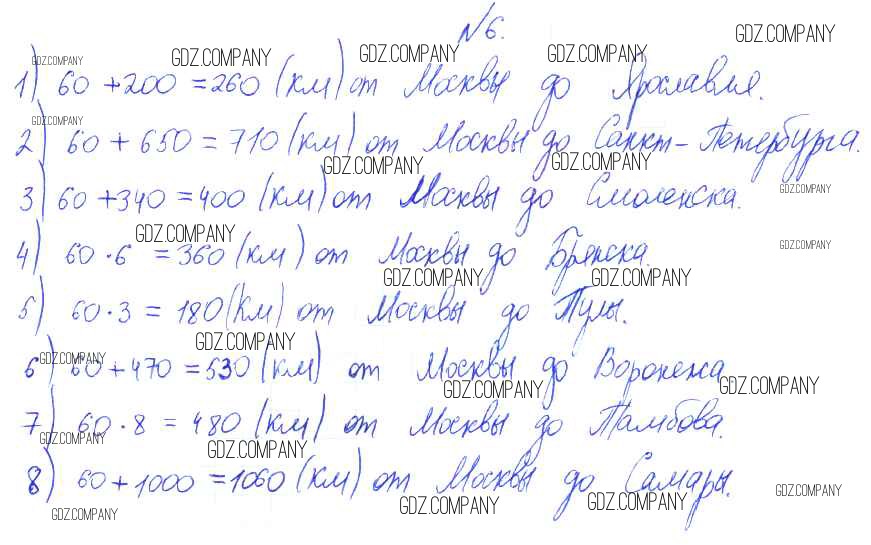 №6.
GDZ.COMPANY
GDZ.COMPANY GDZ.COMPANY GDZ.COMPANY GDZ.COMPANY
1) 60 + 200 = 260 (км) от Москвы до Ярославля.
GDZ.COMPANY
2) 60 + 650 = 710 (км) от Москвы до Санкт-Петербурга.
GDZ.COMPANY GDZ.COMPANY
3) 60 + 340 = 400 (км) от Москвы до Смоленска.
GDZ.COMPANY
GDZ.COMPANY GDZ.COMPANY
4) 60 · 6 = 360 (км) от Москвы до Брянска.
GDZ.COMPANY GDZ.COMPANY
5) 60 · 3 = 180 (км) от Москвы до Тулы.
GDZ.COMPANY
GDZ.COMPANY
6) 60 + 470 = 530 (км) от Москвы до Воронежа
GDZ.COMPANY GDZ.COMPANY
7) 60 · 8 = 480 (км) от Москвы до Тамбова.
GDZ.COMPANY GDZ.COMPANY
8) 60 + 1000 = 1060 (км) от Москвы до Самары.
GDZ.COMPANY GDZ.COMPANY GDZ.COMPANY GDZ.COMPANY